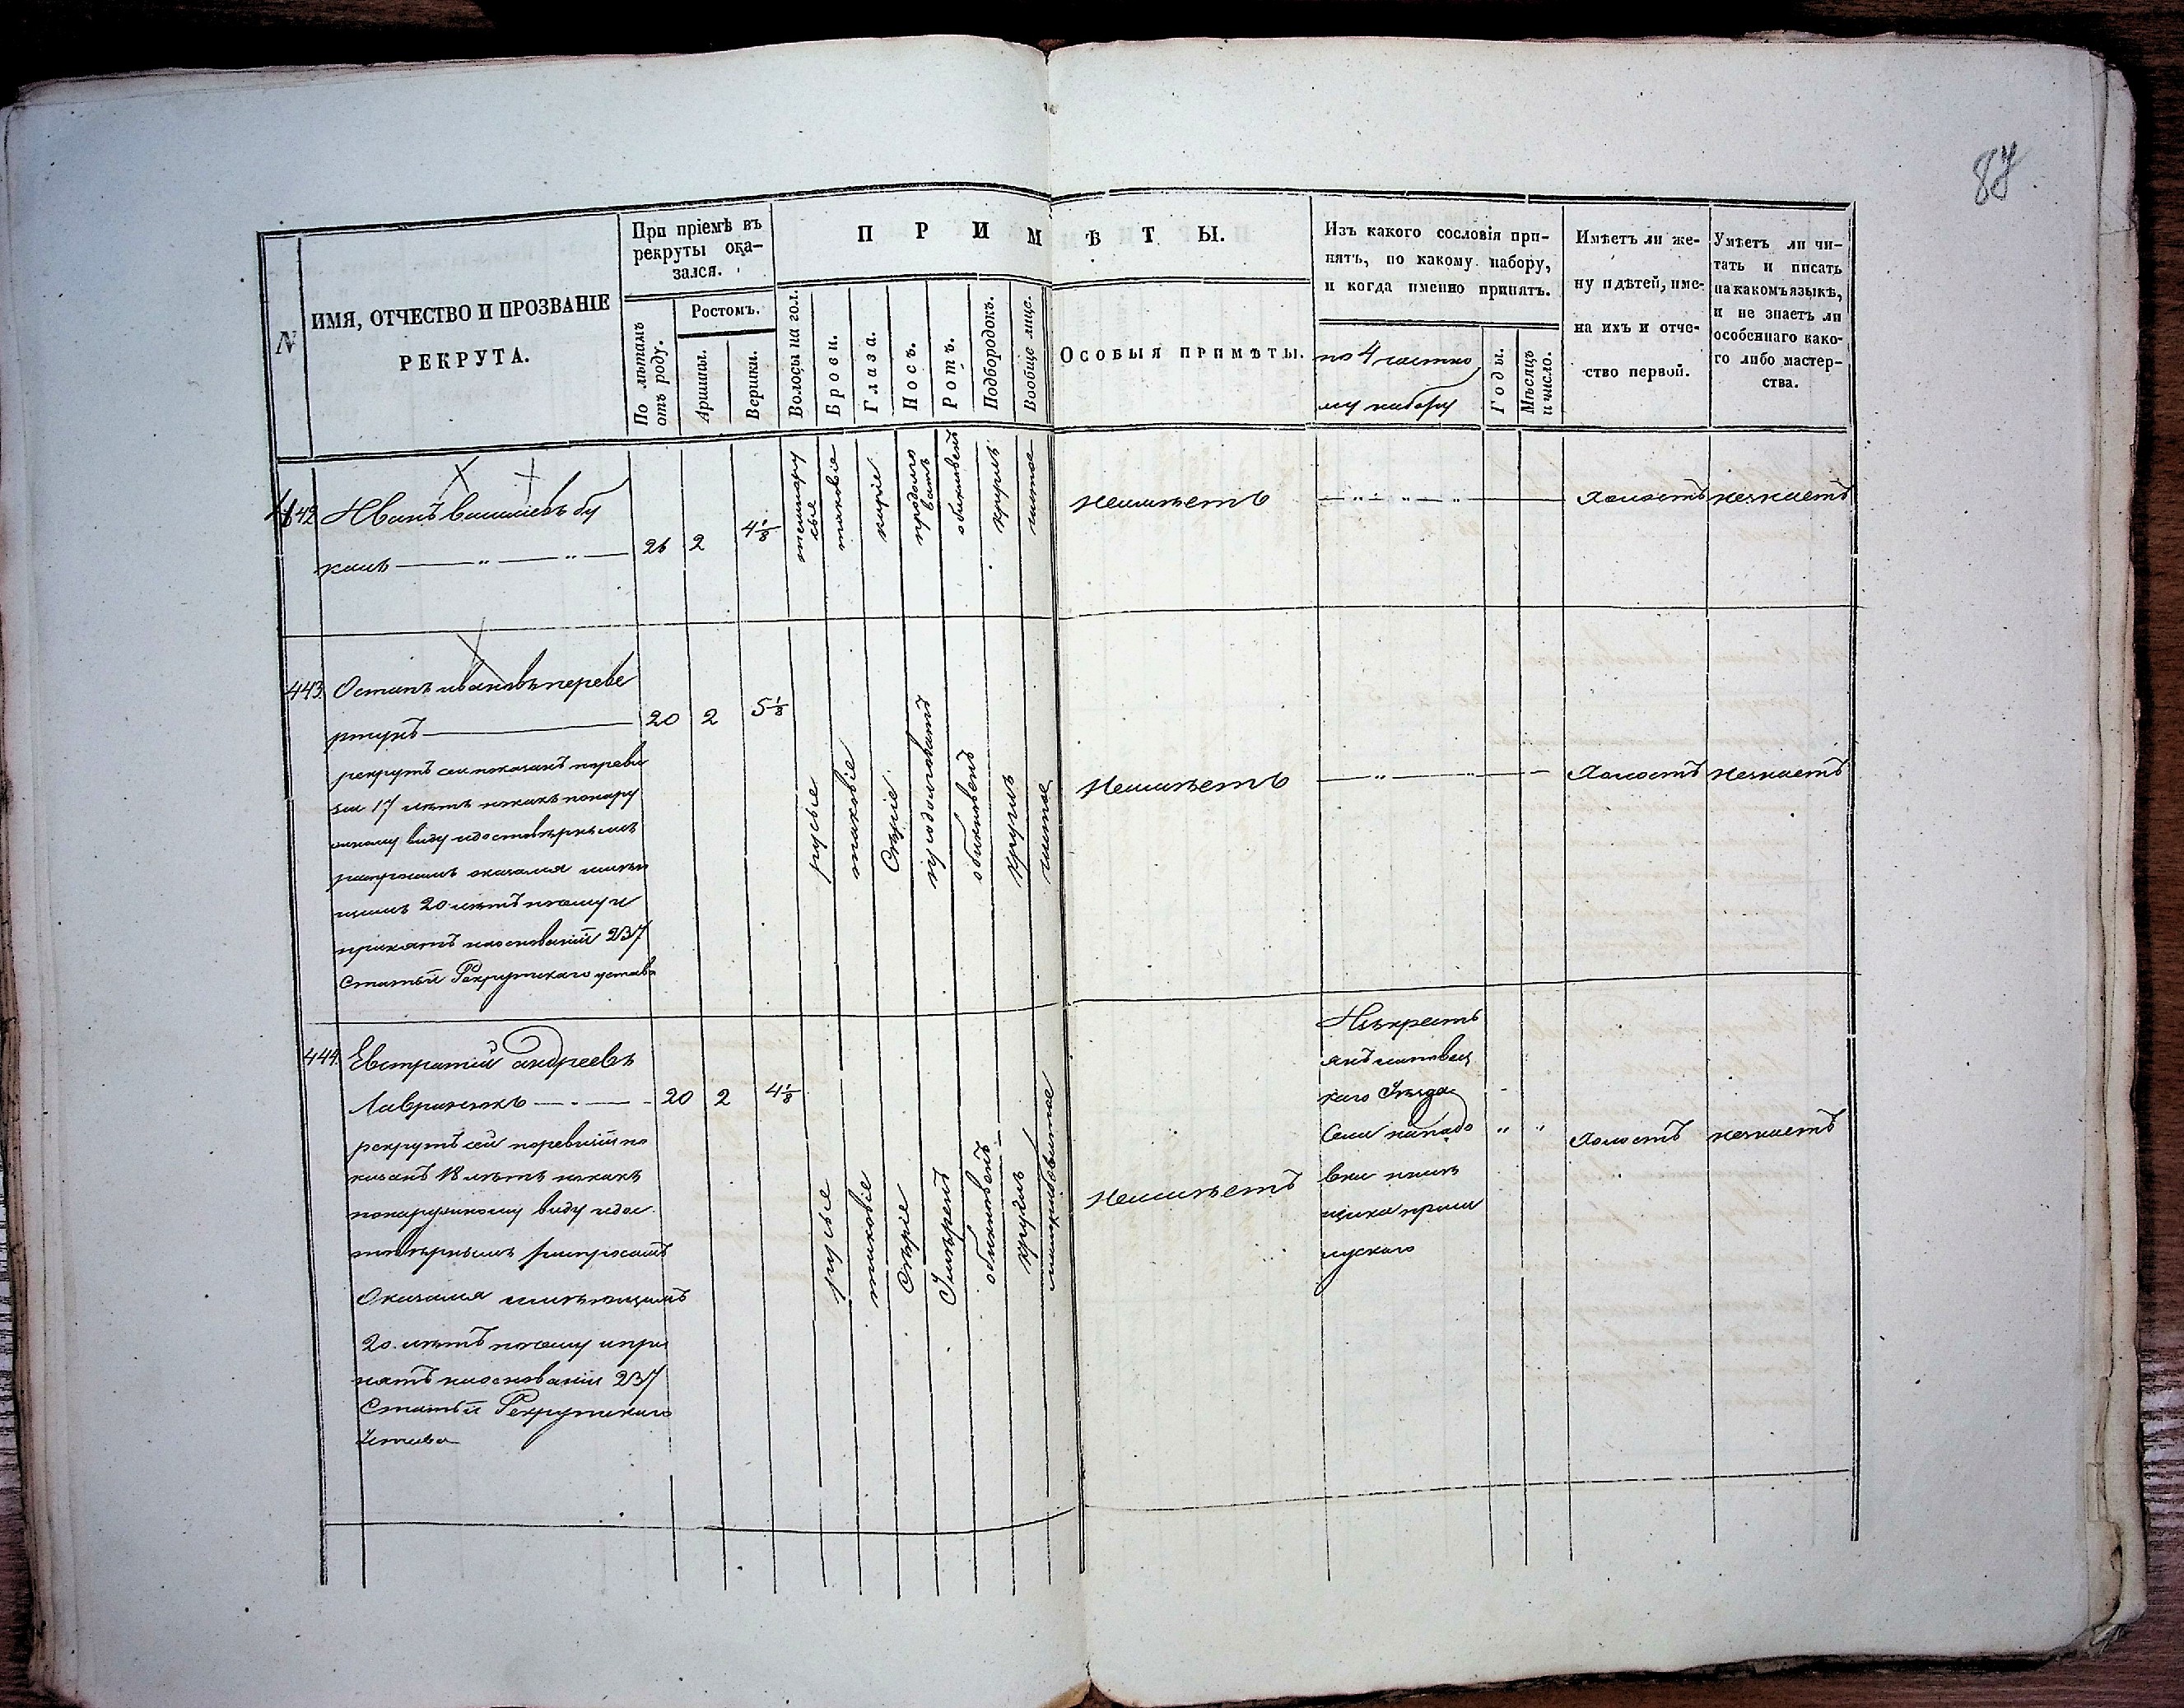 87
N
ИМЯ, ОТЧЕСТВО И ПРОЗВАНІЕ
РЕКРУТА.
При пріемѣ въ
рекруты ока-
зался.
По лѣтамъ
отъ роду.
Ростомъ.
Аршины.
Вершки.
ПРИМѢТЫ.
Волосы на гол.
Брови.
Глаза.
Носъ.
Ротъ.
Подбородокъ.
Вообще лице.
Особыя примѣты.
Изъ какого сословія при-
нятъ, по какому набору,
и когда именно принятъ.
по 4 частно
му набору
Годы.
Мѣсяцъ
и число.
Имѣетъ ли же-
ну и дѣтей, име-
на ихъ и отче-
ство первой.
Умѣетъ ли чи-
тать и писать
на какомъ языкѣ,
и не знаетъ ли
особеннаго како-
го либо мастер-
ства.
442 Иванъ васильевъ бу
камъ — " — " —
26 2 4⅛
темнору
сые
таковіе
каріе
продолго
ватъ
обикновенъ
круглъ
чистое
неимѣетъ
— " — " — " —
Холостъ
незнаетъ
443. Остапъ ивановъ переве
ртунъ —
20 2 5⅛
рекрутъ сей показанъ поревы
зіи 17 лѣтъ нокакъ понару
жному виду идостовѣрнымъ
роспросамъ оказался имѣю
щимъ 20 лѣтъ потому и
принятъ наоснованіи 237
Статьи Рекрутскаго устава
русые
таковіе
Сѣріе
обикновенъ
круглъ
чистое
Неимѣетъ
— " — " —
Холостъ
незнаетъ
444. Евстратій андреевъ
Лавринюкъ — " —
20 2 4⅛
рекрутъ сей поревизіи по
казанъ 18 лѣтъ нокакъ
понаружному виду идос
товѣрнымъ роспросамъ
Оказался имѣющимъ
20 лѣтъ потому и при
нятъ наоснованіи 237
Статьи Рекрутскаго
Устава
русые
таковіе
Сѣріе
Умѣренъ
обикновенъ
круглъ
Неимѣетъ
Изъкресть
янъ липовец
каго Уѣзда
Села
вки помѣ
щика
" "
Холостъ
незнаетъ